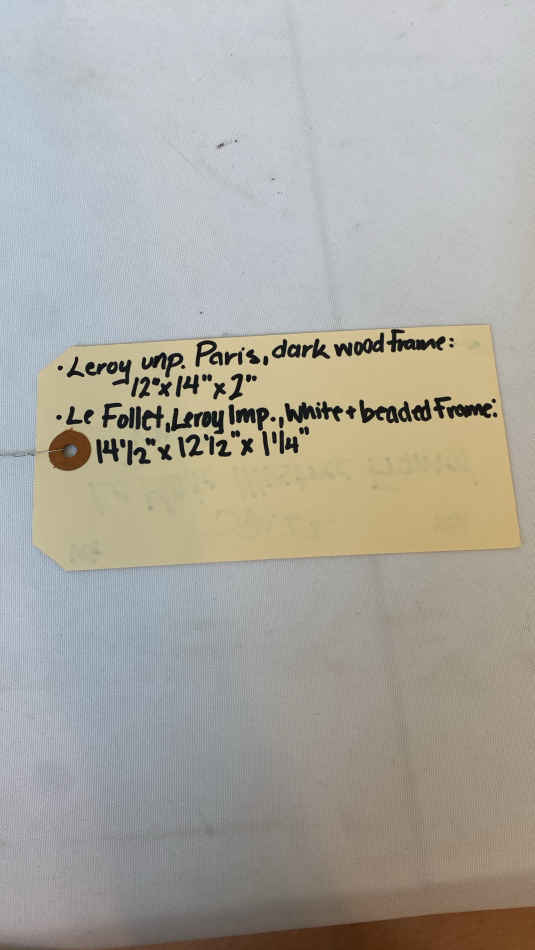 · Leroy unp. Paris, dark wood frame:
12" x 14" x 2"
· Le Follet, Leroy Imp., White + beaded Frame:
14 1/2" x 12 1/2" x 1 1/4"